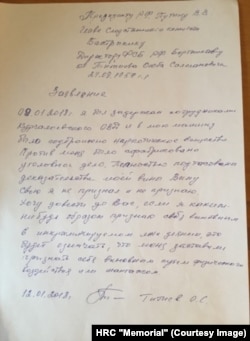 Президенту РФ Путину В.В.
Главе Следственного комитета
Бастрыкину
Директору ФСБ РФ Бортникову
от Титиева Оюба Салмановича
24.08.1957 г.
Заявление
09.01.2018 г. я был задержан сотрудниками
Курчалоевского ОВД и в мою машину
было подброшено наркотическое вещество
Против меня было сфабриковано
уголовное дело. Полностью подтасованы
доказательства моей вины. Вину
свою я не признал и не признаю.
Хочу довести до Вас, если я каким-
нибудь образом признаю себя виновным
в инкриминируемом мне деянии, это
будет означать, что меня заставили
признать себя виновным путем физического
воздействия или шантажом
12.01.2018. Титиев О.С.
HRC "Memorial" (Courtesy Image)